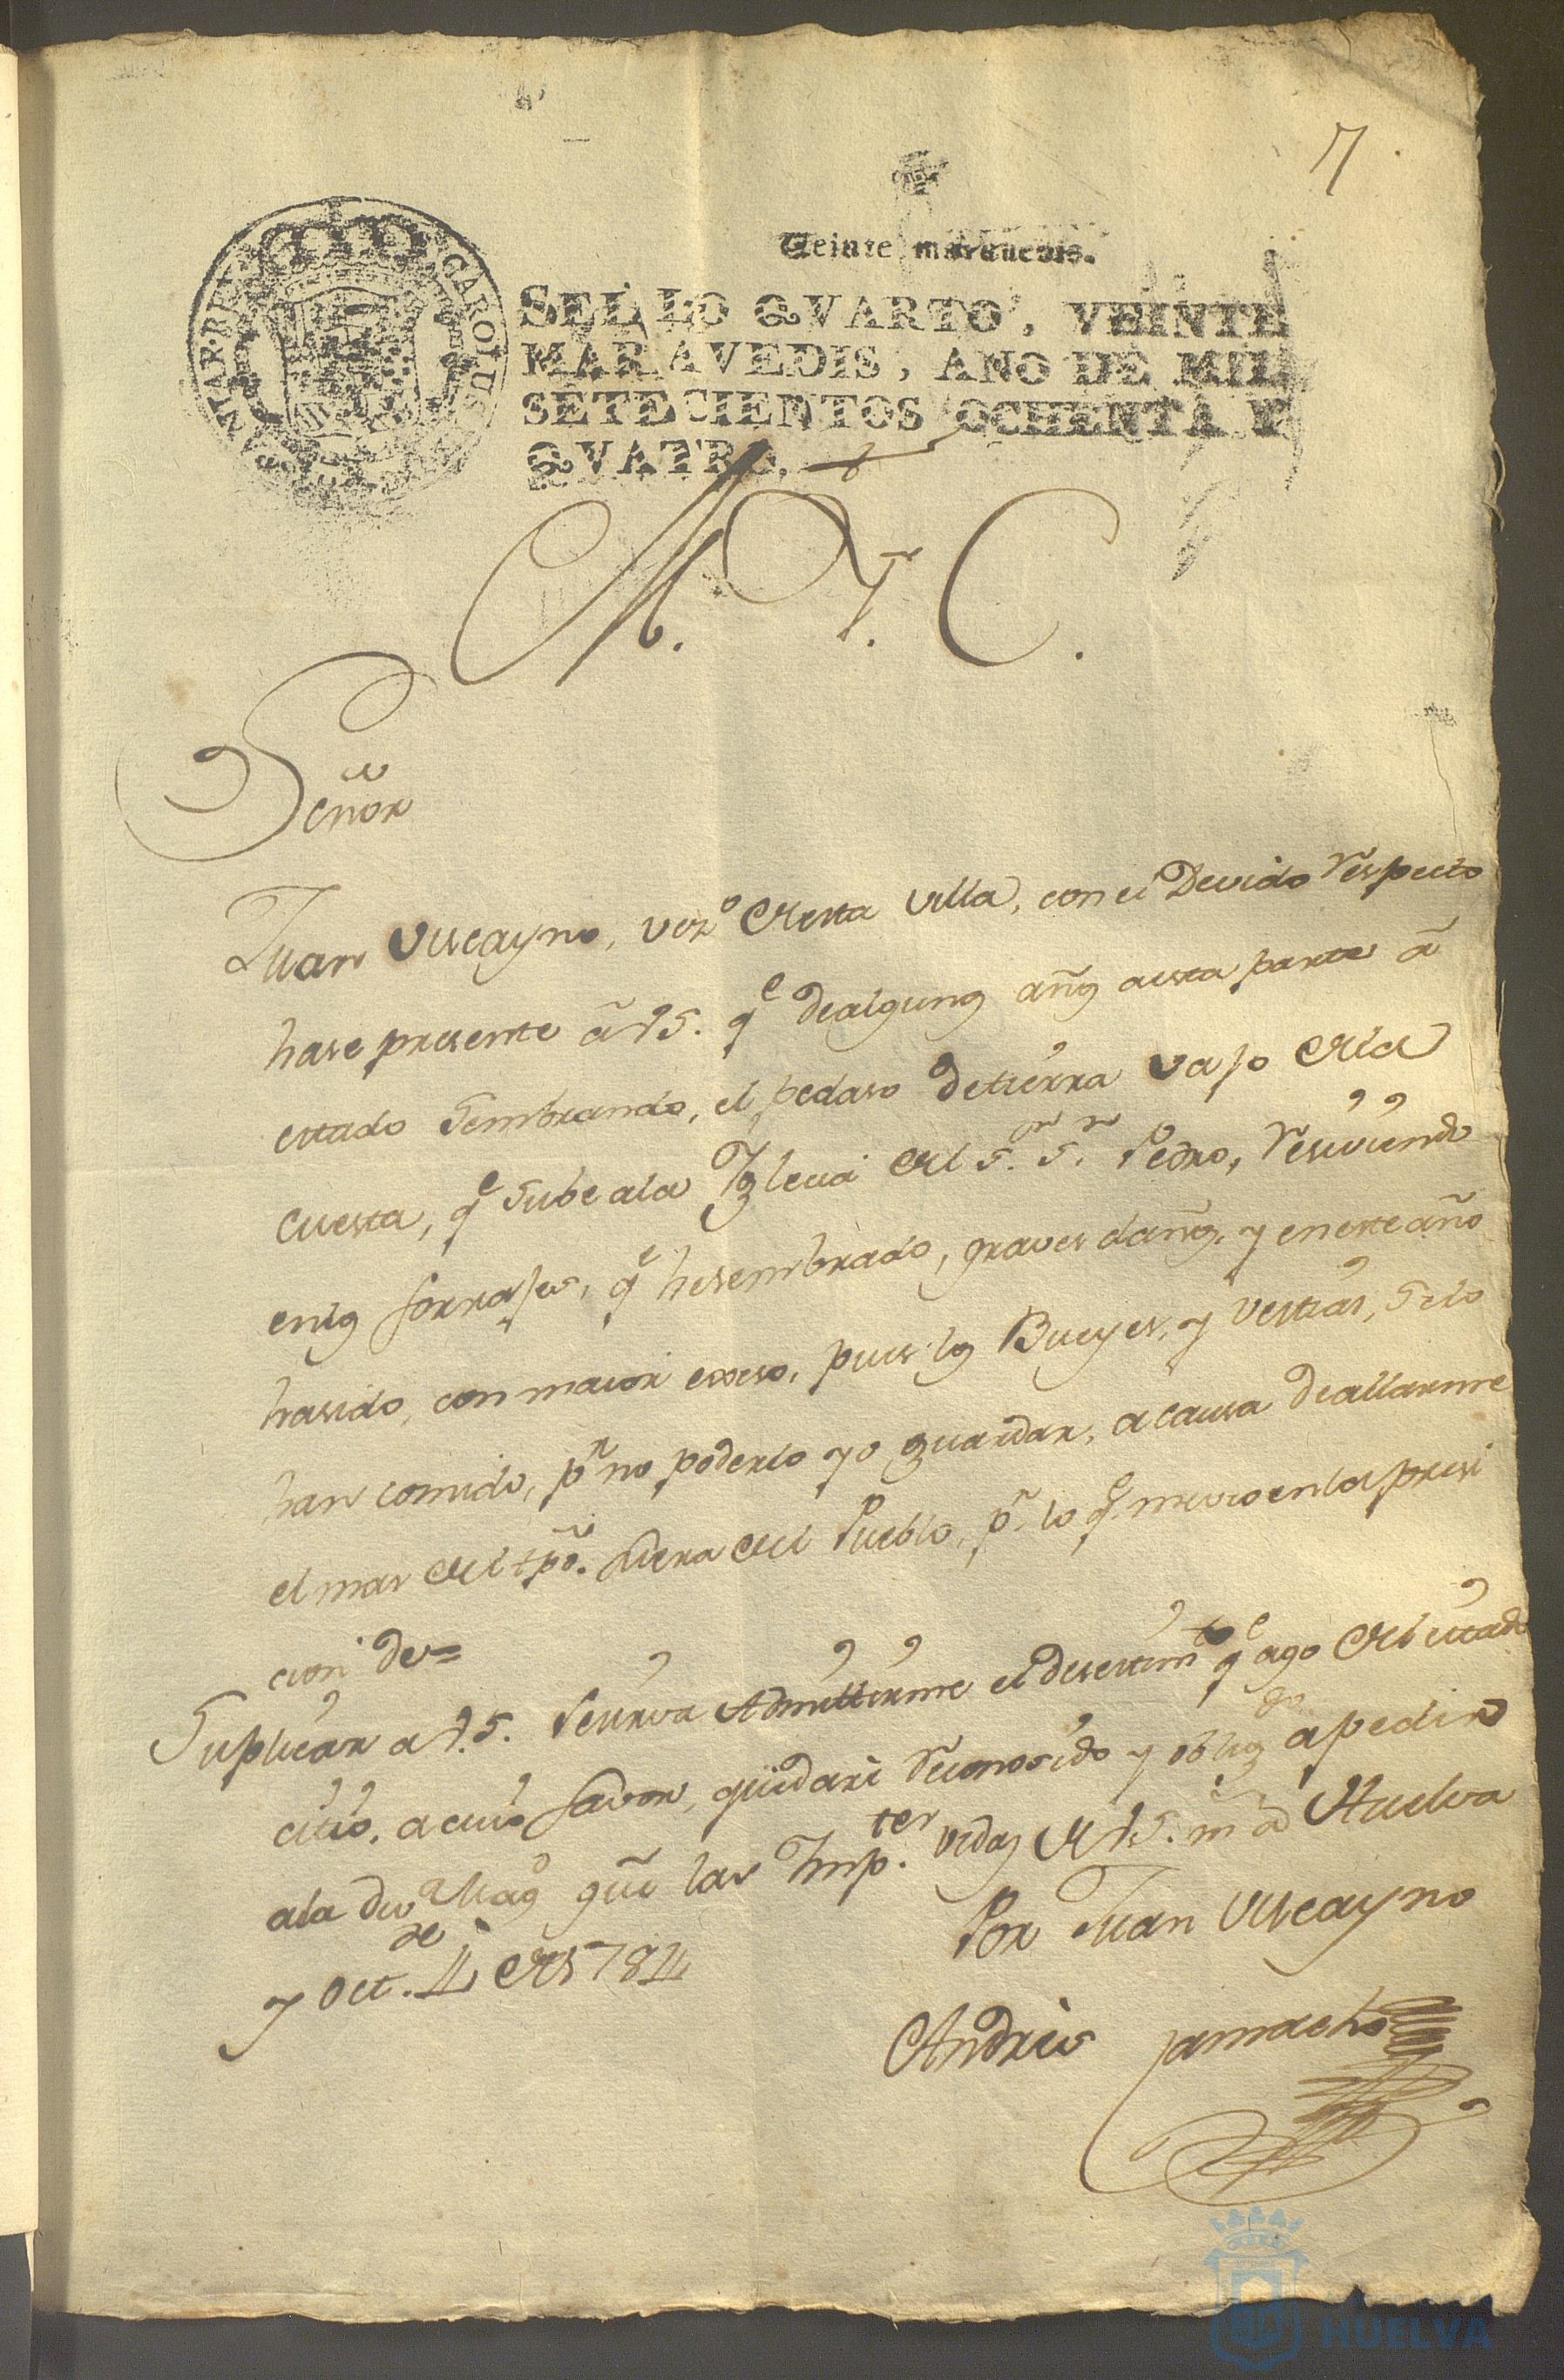 7
Veinte maravedis.
SELLO QVARTO, VEINTE
MARAVEDIS, AÑO DE MIL
SETECIENTOS OCHENTA Y
QVATRO.
M. Y. C.
Señor
Juan Viscayno, vezº de esta villa, con el Devido respecto
hase presente â VS. qe de algunos años a esta parte â
estado sembrando, el pedaso de tierra vajo de la
cuesta, qe sube a la Yglecia del Sor. Sn. Pedro, resiviendo
en los forrajes, qe he sembrado, graves daños, y en este año
ha sido, con maior exceso, pues los Bueyes, y vestias, se lo
han comido, pr no poderlo yo guardar, a causa de allarme
el mas del tpō. fuera del Pueblo, pr. lo qe. me veo en la presi
cion de=
Suplicar a V.S. se sirva Admittirme el desestimto qe ago del citado
citio, a cuio favor, quedaré reconosido y obligdo a pedir
a la Diva Magd gūe las Imp.tes vidas de VS. m a Huelva
y Oct.re 4 de 1784
Por Juan Viscayno
Andres Camacho
HUELVA